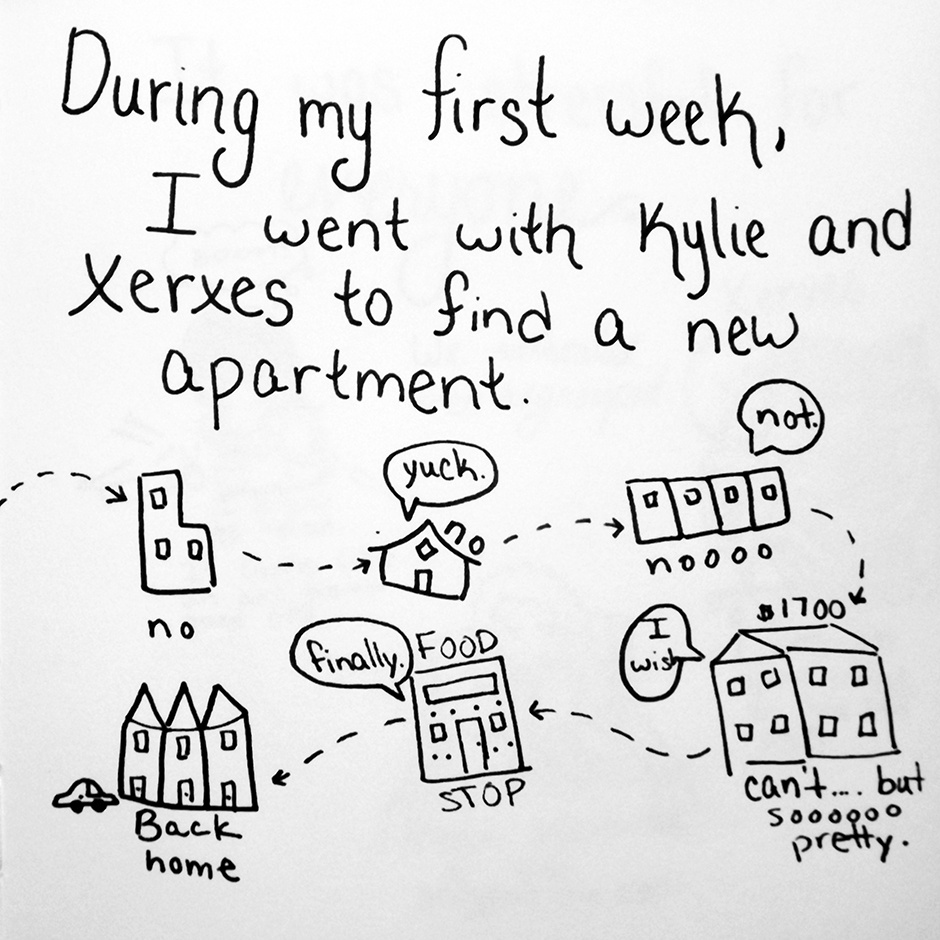 During my first week,
I went with Kylie and
Xerxes to find a new
apartment.
no
yuck.
no
not.
noooo
$1700
I
wish
can't.... but
soooooo
pretty.
finally.
FOOD
STOP
Back
home